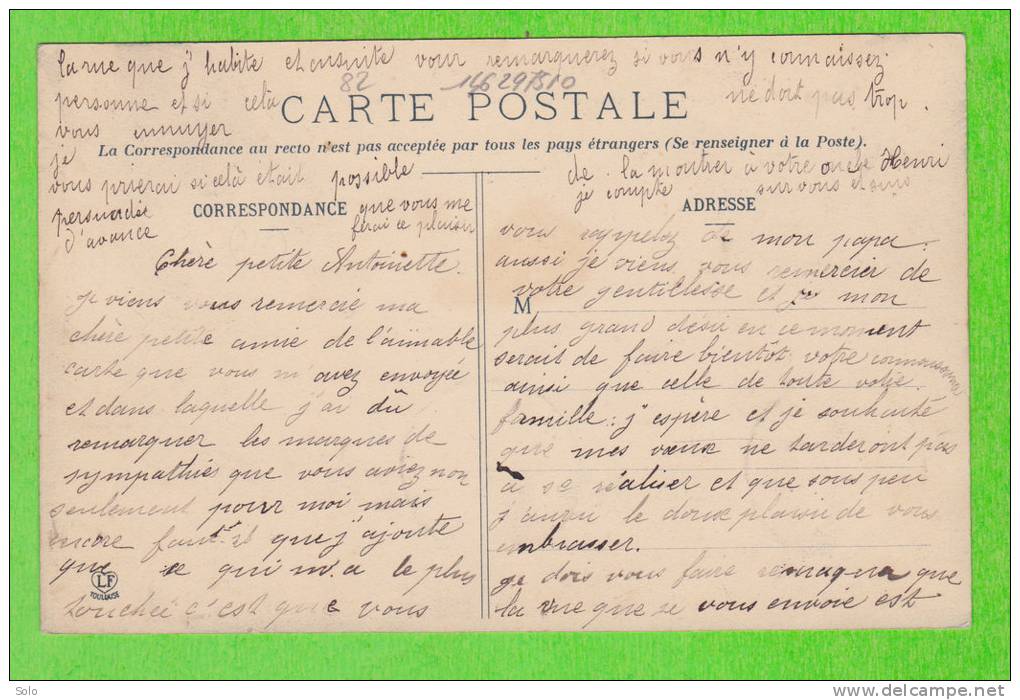 la rue que j'habite et ensuite vous remarquerez si vous n'y connaissez
personne et si celà ne doit pas trop.
82
14629/510
vous ennuyer
CARTE POSTALE
La Correspondance au recto n'est pas acceptée par tous les pays étrangers (Se renseigner à la Poste).
je
vous prierai si celà était possible de la montrer à votre oncle Henri
persuadée que vous me je compte sur vous et suis
d'avance ferai ce plaisir
CORRESPONDANCE
ADRESSE
Chère petite Antoinette.
je viens vous remercié ma
chère petite amie de l'aimable
carte que vous m'avez envoyée
et dans laquelle j'ai dû
remarquer les marques de
sympathies que vous aviez non
seulement pour moi mais
encore faut-il que j'ajoute
que ce qui m'a le plus
touchée c'est que vous
LF
TOULOUSE
vous rappelez de mon papa.
aussi je viens vous remercier de
votre gentillesse et mon
M
plus grand désir en ce moment
serait de faire bientôt votre connaissance
ainsi que celle de toute votre
famille: j'espère et je souhaite
que mes vœux ne tarderont pas
à se réaliser et que sous peu
j'aurai le doux plaisir de vous
embrasser.
je dois vous faire remarquer que
la vue que je vous envoie est
Solo
www.delcampe.net